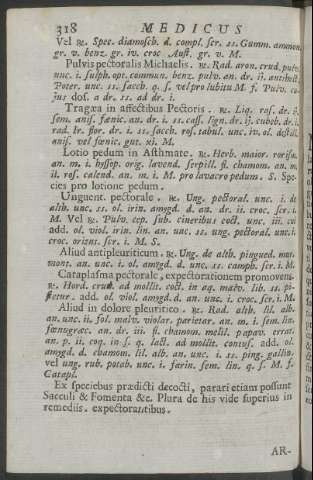 318 MEDICUS
Vel ℞. Spec. diamosch. d. compl. scr. ss. Gumm. ammon.
gr. v. benz. gr. iv. croc. Aust. gr. v. M.
Pulvis pectoralis Michaelis. ℞. Rad. aron. crud. pulv.
unc. i. sulph. opt. commun. benz. pulv. an. dr. ij. antihect.
Poter. unc. ss. sacch. q. s. vel pro lubitu M. f. Pulv. cu-
jus dos. a dr. ss. ad dr. i.
Tragæa in affectibus Pectoris. ℞. Liq. ras. dr. ij.
sem. anis. fœnic. an. dr. i. ss. cass. lign. dr. ij. cubeb. dr. i.
rad. Ir. flor. dr. i. ss. sacch. ros. tabul. unc. iv. ol. destill.
anis. vel fœnic. gut. xi. M.
Lotio pedum in Asthmate. ℞. Herb. maior. rorism.
an. m. i. hyssop. orig. lavend. serpill. fl. chamom. an. m.
ii. ros. calend. an. m. i. M. pro lavacro pedum. S. Spe-
cies pro lotione pedum.
Unguent. pectorale. ℞. Ung. pectoral. unc. i. de
alth. unc. ss. ol. irin. amygd. d. an. dr. ii. croc. scr. i.
M. Vel ℞. Pulv. cep. sub. cineribus coct. unc. iii. cui
add. ol. viol. irin. lin. an. unc. ss. ung. pectoral. unc. i.
croc. orient. scr. i. M. S.
Aliud antipleuriticum. ℞. Ung. de alth. pingued. mus.
mont. an. unc. i. ol. amygd. d. unc. ss. camph. scr. i. M.
Cataplasma pectorale, expectorationem promovens.
℞. Hord. crud. ad mollit. coct. in aq. malv. lib. ss. pi-
stetur. add. ol. viol. amygd. d. an. unc. i. croc. scr. i. M.
Aliud in dolore pleuritico. ℞. Rad. alth. lil. alb.
an. unc. ii. fol. malv. violar. parietar. an. m. i. sem. lin.
fœnugræc. an. dr. iii. fl. chamom. melil. papav. errat.
an. p. ii. coq. in s. q. lact. ad mollit. contus. add. ol.
amygd. d. chamom. lil. alb. an. unc. i. ss. ping. gallin.
vel ung. rub. potab. unc. i. farin. sem. lin. q. s. M. f.
Catapl.
Ex speciebus prædicti decocti, parari etiam possunt
Sacculi & Fomenta &c. Plura de his vide superius in
remediis. expectorantibus.
AR-